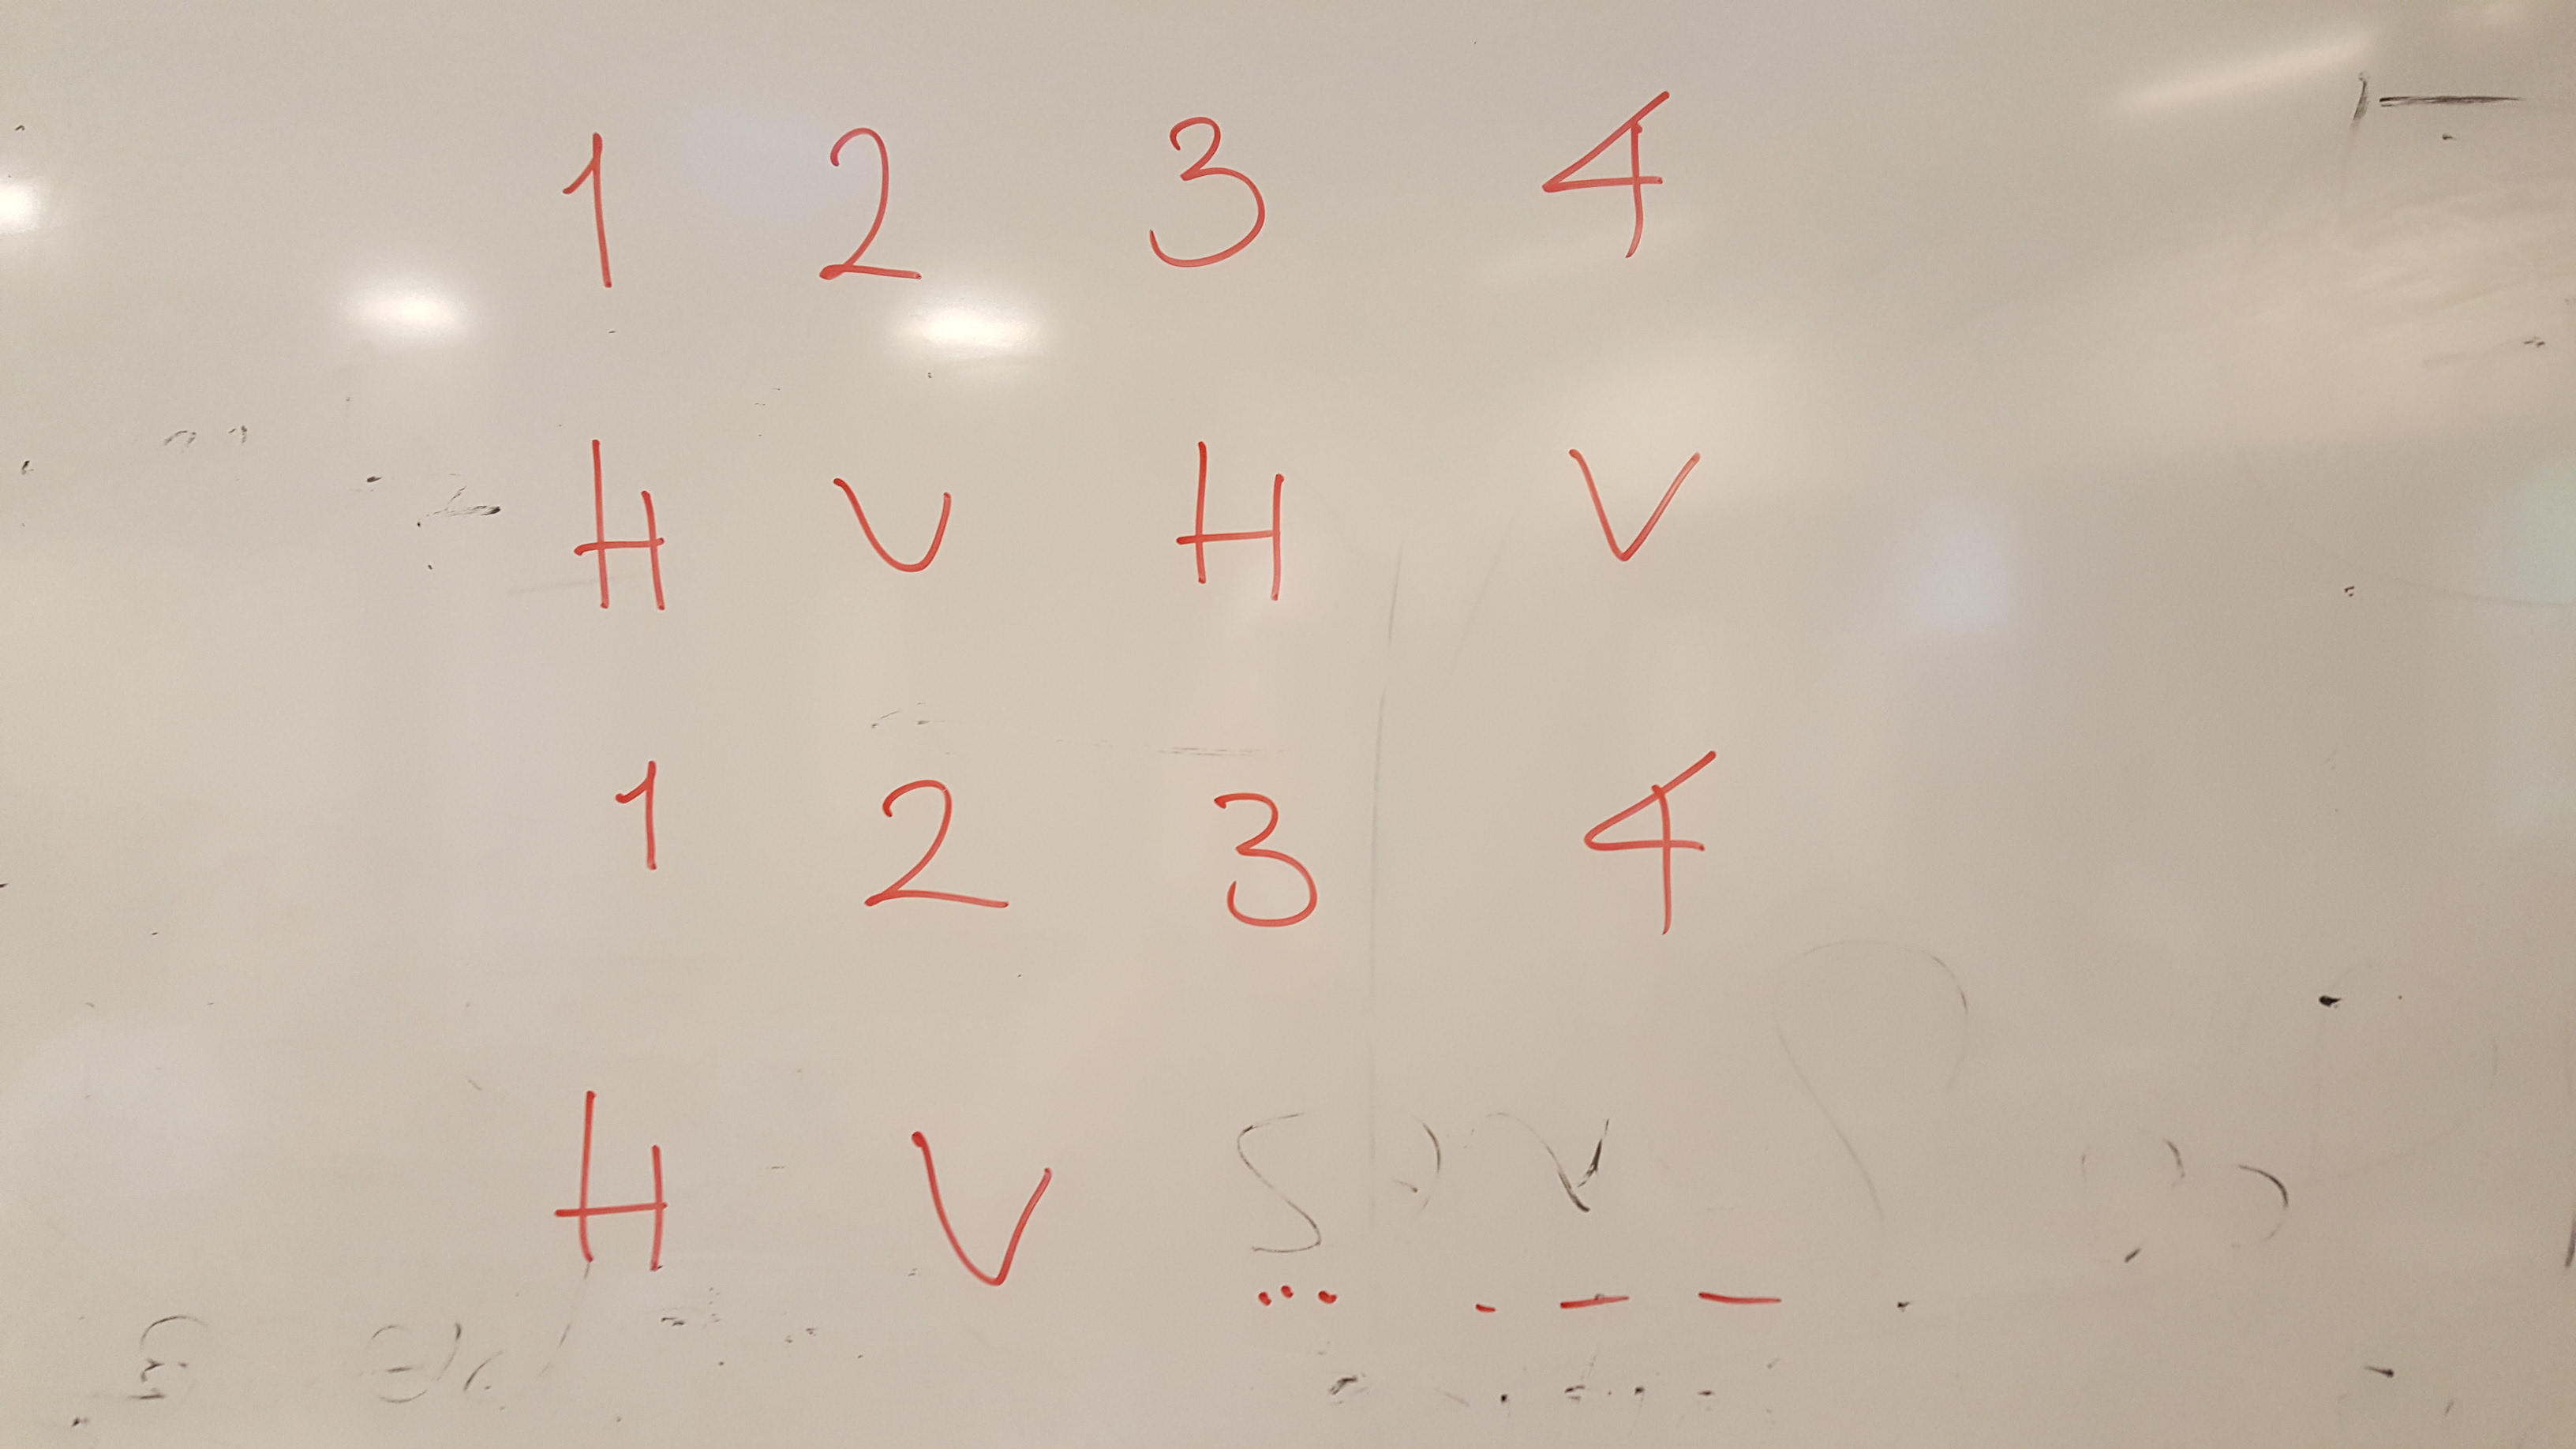 1 2 3 4
H V H V
1 2 3 4
H V ... - - -